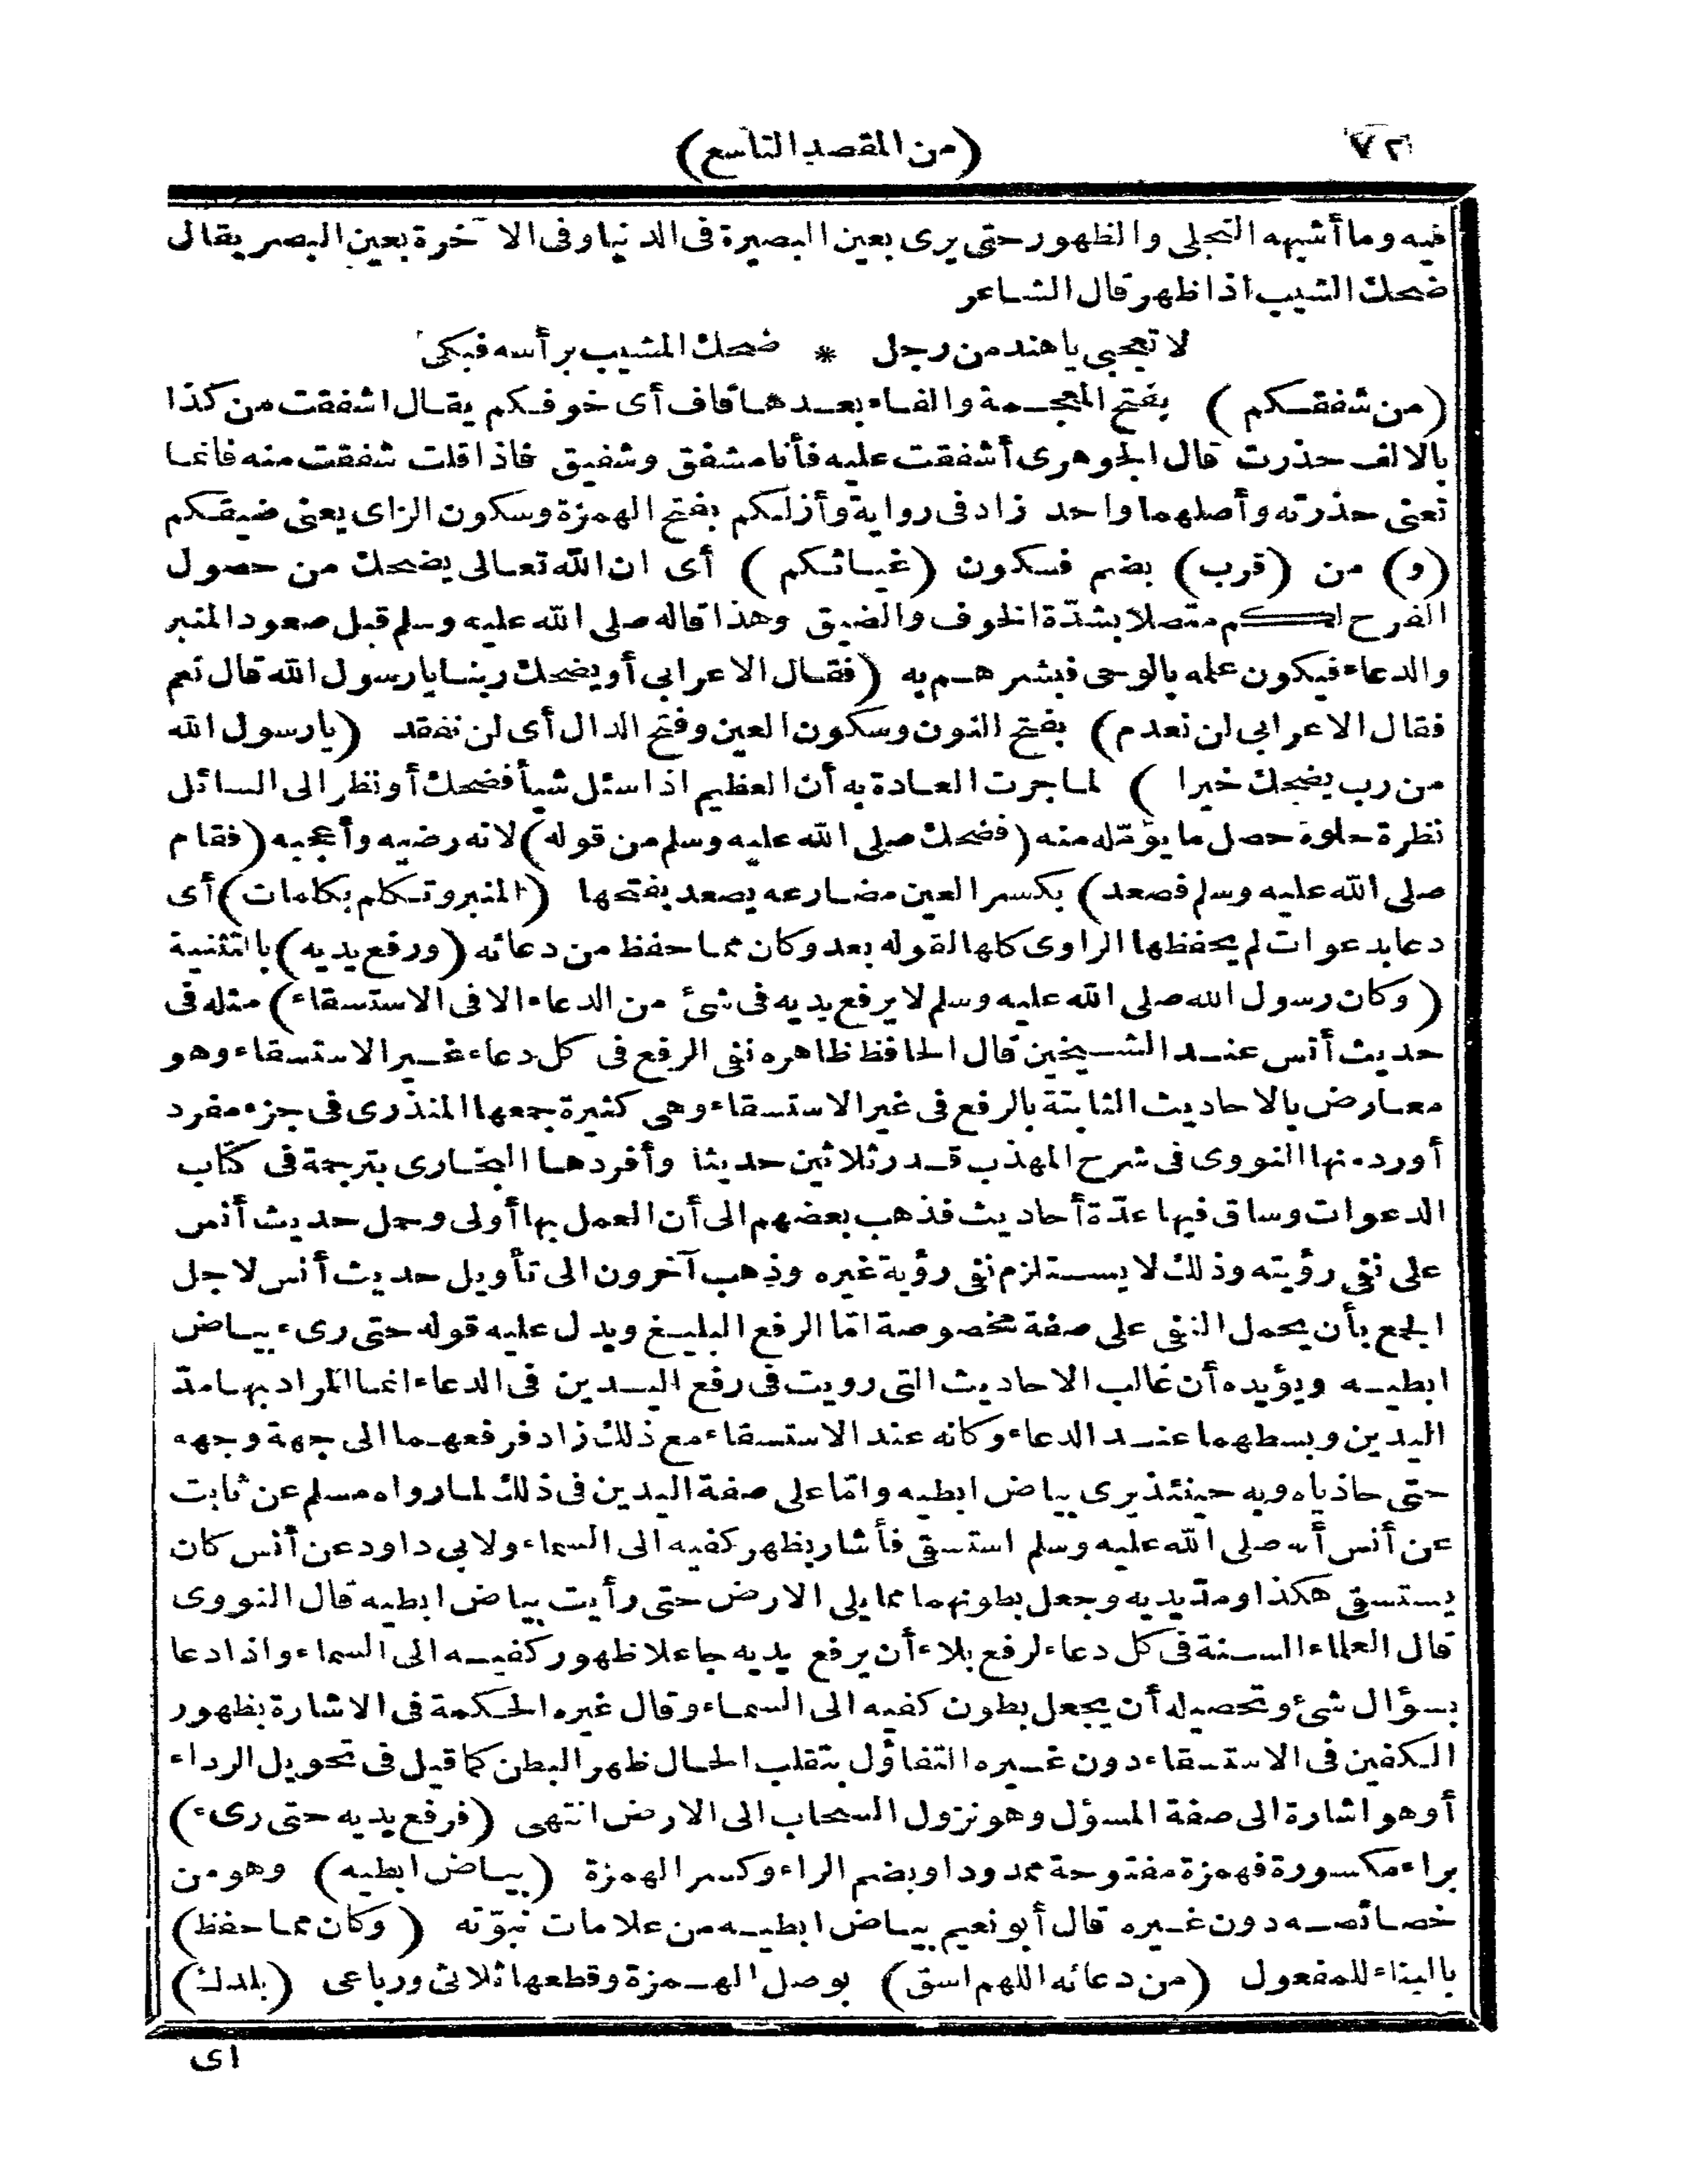 (من المقصد التاسع)
فيه وما أشبهه التجلى والظهور حتى يرى بعين البصيرة فى الدنيا وفى الآخرة بعين البصر يقال
ضحك الشيب اذا ظهر قال الشاعر
لا تعجبى يا هند من رجل * ضحك المشيب برأسه فبكى
(من شفقكم) بفتح المعجمة والفاء بعدها قاف أى خوفكم يقال اشفقت من كذا
بالالف حذرت قال الجوهرى أشفقت عليه فأنا مشفق وشفيق فاذا قلت شفقت منه فانما
تعنى حذرته وأصلهما واحد زاد فى رواية وأزلكم بفتح الهمزة وسكون الزاى يعنى ضيقكم
(و) من (قرب) بضم فسكون (غياثكم) أى ان الله تعالى يضحك من حصول
الفرح لكم متصلا بشدّة الخوف والضيق وهذا قاله صلى الله عليه وسلم قبل صعود المنبر
والدعاء فيكون علمه بالوحى فبشرهم به (فقال الاعرابى أو يضحك ربنا يا رسول الله قال نعم
فقال الاعرابى لن نعدم) بفتح النون وسكون العين وفتح الدال أى لن نفقد (يا رسول الله
من رب يضحك خيرا) لما جرت العادة به أن العظيم اذا سئل شيأ فضحك أو نظر الى السائل
نظرة حلوة حصل ما يؤمّله منه (فضحك صلى الله عليه وسلم من قوله) لانه رضيه وأعجبه (فقام
صلى الله عليه وسلم فصعد) بكسر العين مضارعه يصعد بفتحها (المنبر وتكلم بكلمات) أى
دعا بدعوات لم يحفظها الراوى كلها لقوله بعد وكان مما حفظ من دعائه (ورفع يديه) بالتثنية
(وكان رسول الله صلى الله عليه وسلم لا يرفع يديه فى شئ من الدعاء الا فى الاستسقاء) مثله فى
حديث أنس عند الشيخين قال الحافظ ظاهره نفى الرفع فى كل دعاء غير الاستسقاء وهو
معارض بالاحاديث الثابتة بالرفع فى غير الاستسقاء وهى كثيرة جمعها المنذرى فى جزء مفرد
أورد منها النووى فى شرح المهذب قدر ثلاثين حديثا وأفردها البخارى بترجمة فى كتاب
الدعوات وساق فيها عدّة أحاديث فذهب بعضهم الى أن العمل بها أولى وحمل حديث أنس
على نفى رؤيته وذلك لا يستلزم نفى رؤية غيره وذهب آخرون الى تأويل حديث أنس لاجل
الجمع بأن يحمل النفى على صفة مخصوصة امّا الرفع البليغ ويدل عليه قوله حتى رىء بياض
ابطيه ويؤيده أن غالب الاحاديث التى رويت فى رفع اليدين فى الدعاء انما المراد بها مدّ
اليدين وبسطهما عند الدعاء وكانه عند الاستسقاء مع ذلك زاد فرفعهما الى جهة وجهه
حتى حاذياه وبه حينئذ يرى بياض ابطيه وامّا على صفة اليدين فى ذلك لما رواه مسلم عن ثابت
عن أنس أنه صلى الله عليه وسلم استسقى فأشار بظهر كفيه الى السماء ولابى داود عن أنس كان
يستسقى هكذا ومدّ يديه وجعل بطونهما مما يلى الارض حتى رأيت بياض ابطيه قال النووى
قال العلماء السنة فى كل دعاء لرفع بلاء أن يرفع يديه جاعلا ظهور كفيه الى السماء واذا دعا
بسؤال شئ وتحصيله أن يجعل بطون كفيه الى السماء وقال غيره الحكمة فى الاشارة بظهور
الكفين فى الاستسقاء دون غيره التفاؤل بتقلب الحال ظهر البطن كما قيل فى تحويل الرداء
أو هو اشارة الى صفة المسؤل وهو نزول السحاب الى الارض انتهى (فرفع يديه حتى رىء)
براء مكسورة فهمزة مفتوحة ممدودا وبضم الراء وكسر الهمزة (بياض ابطيه) وهو من
خصائصه دون غيره قال أبو نعيم بياض ابطيه من علامات نبوّته (وكان مما حفظ)
بالبناء للمفعول (من دعائه اللهم اسق) بوصل الهمزة وقطعها ثلاثى ورباعى (بلدك)
اى